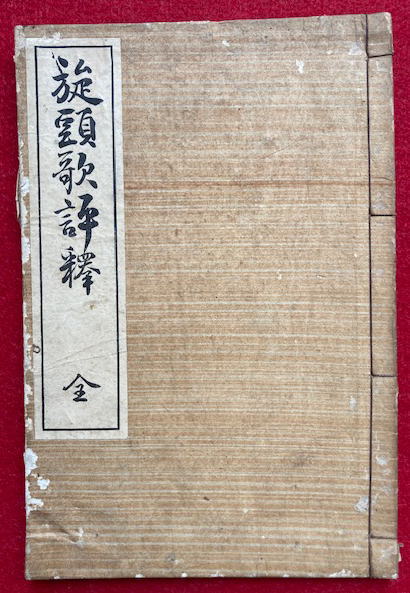 旋頭歌評釋
全